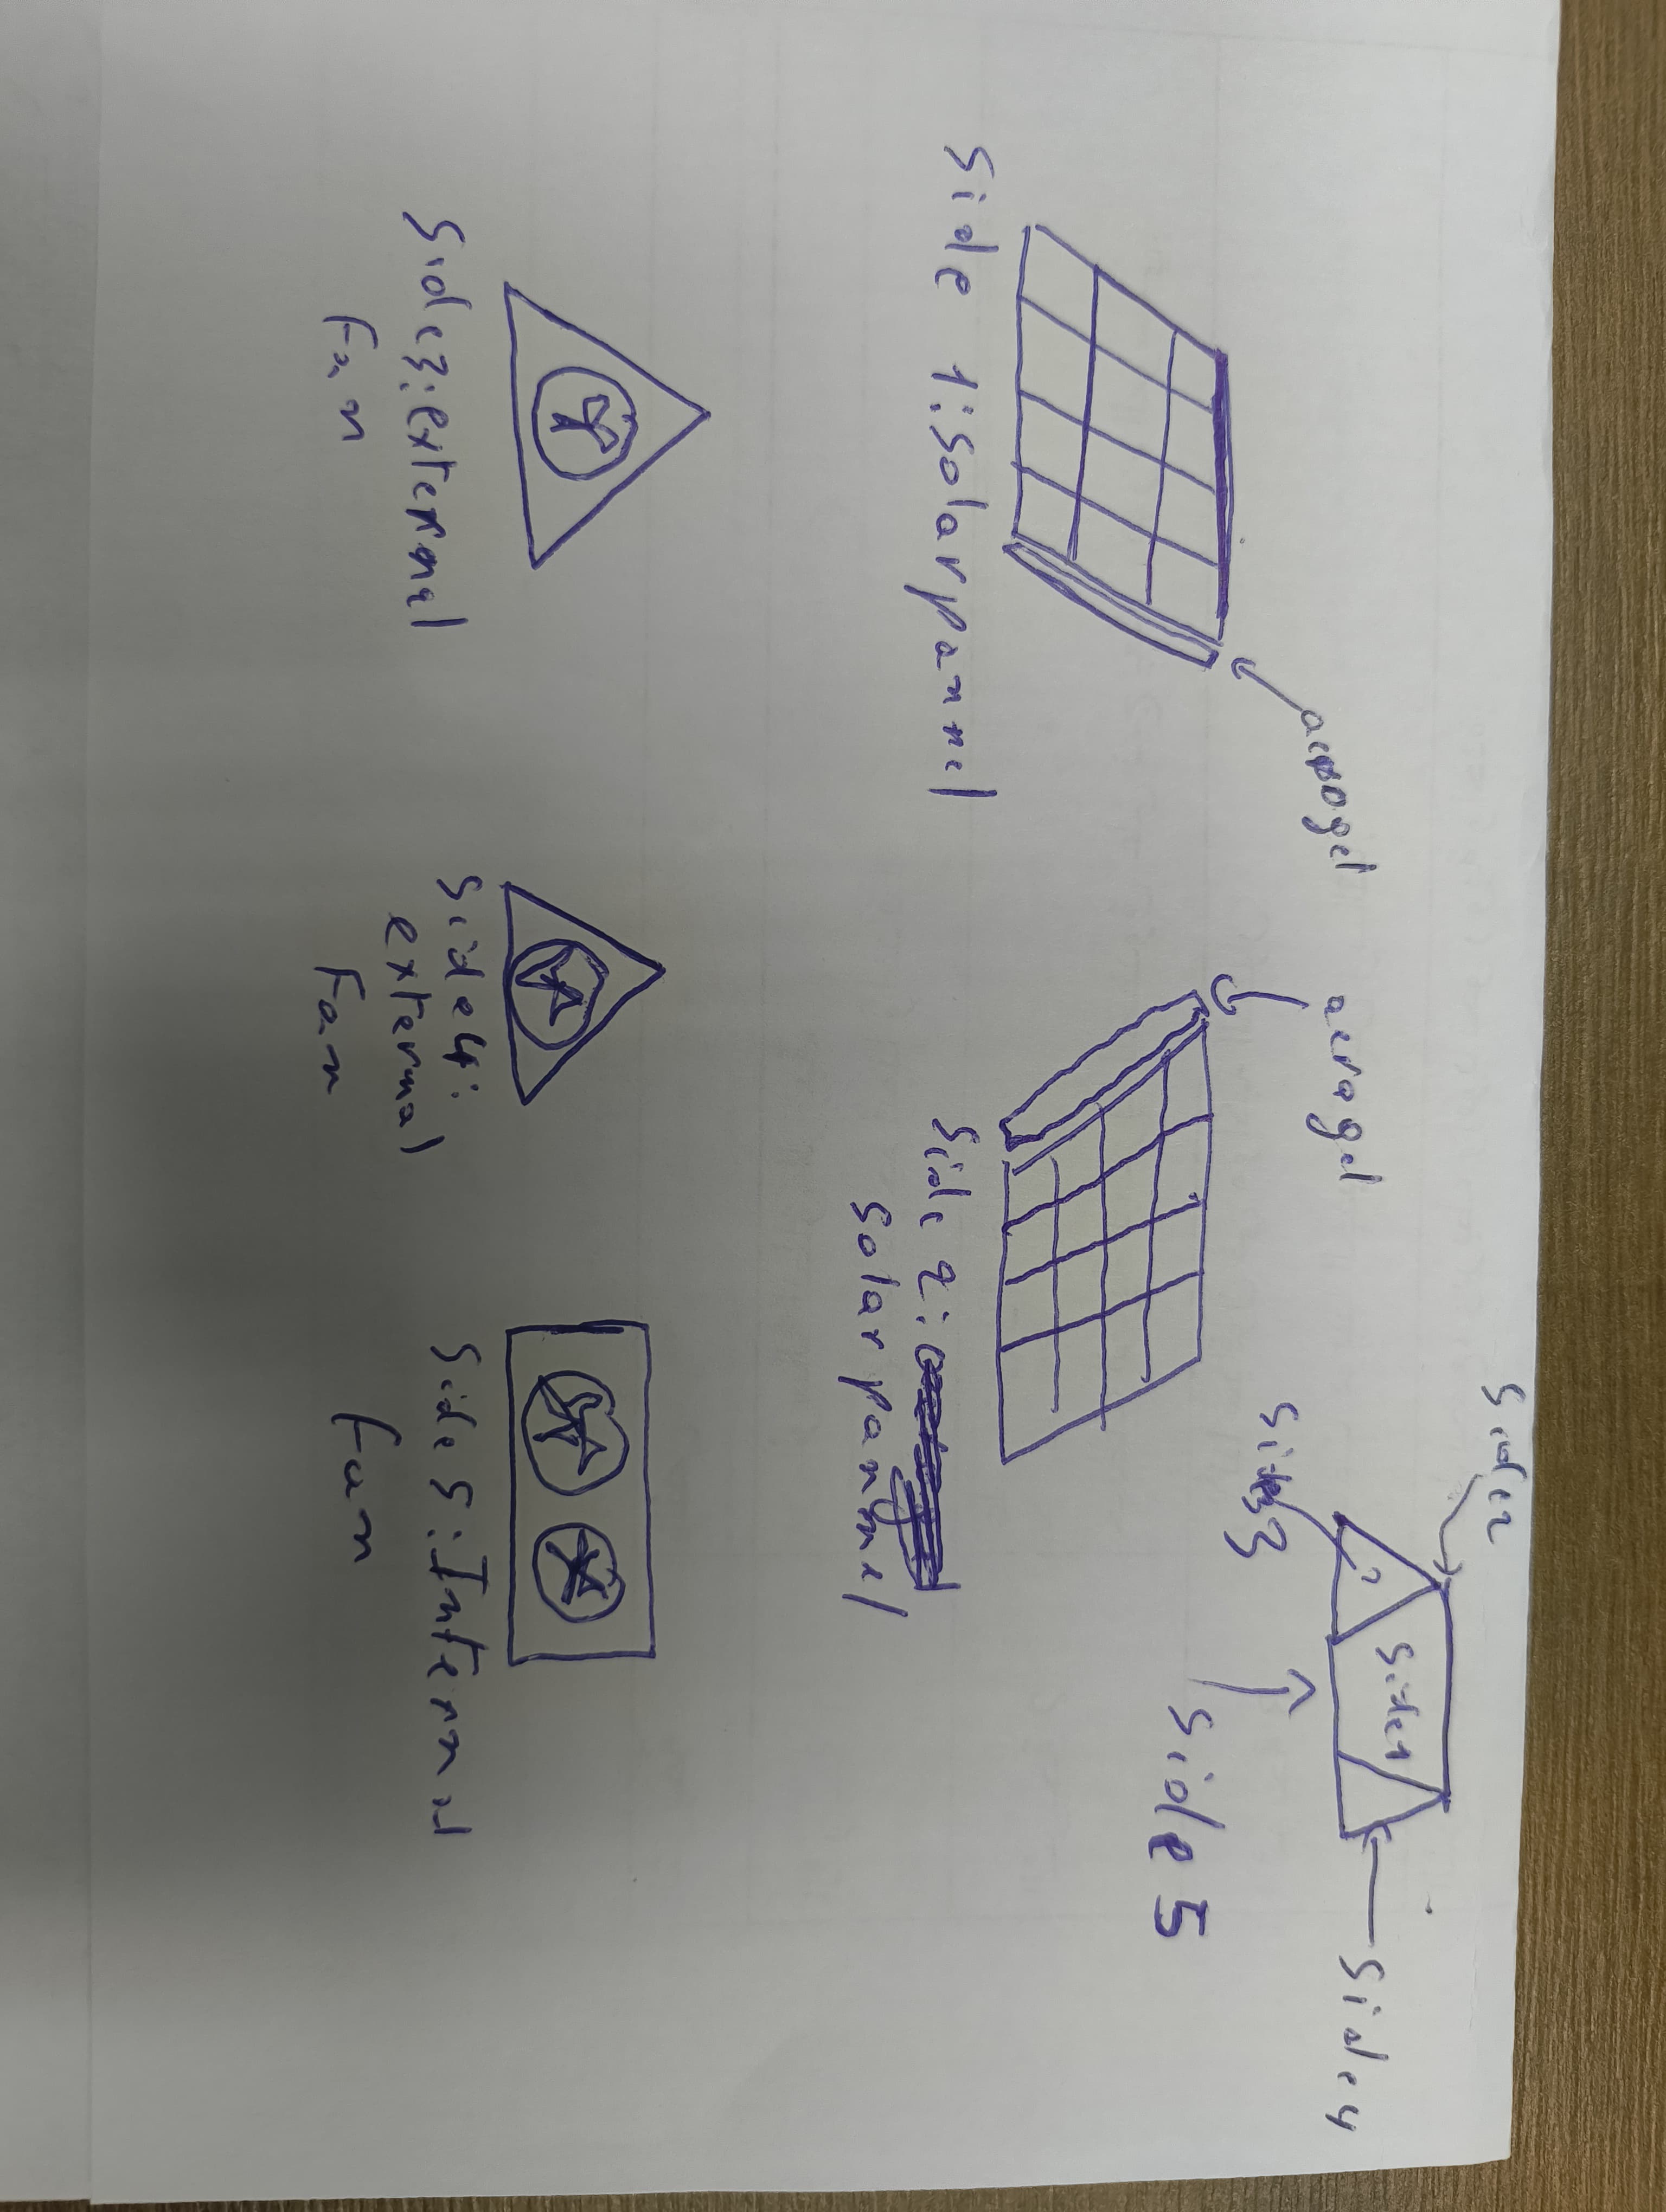 Side 2
Side 1
Side 4
Side 3
Side 5
aerogel
aeragel
Side 1: Solar pannel
Side 2:
Solar pannel
Side 3: external
Fan
Side 4:
external
Fan
Side 5: Internal
Fan